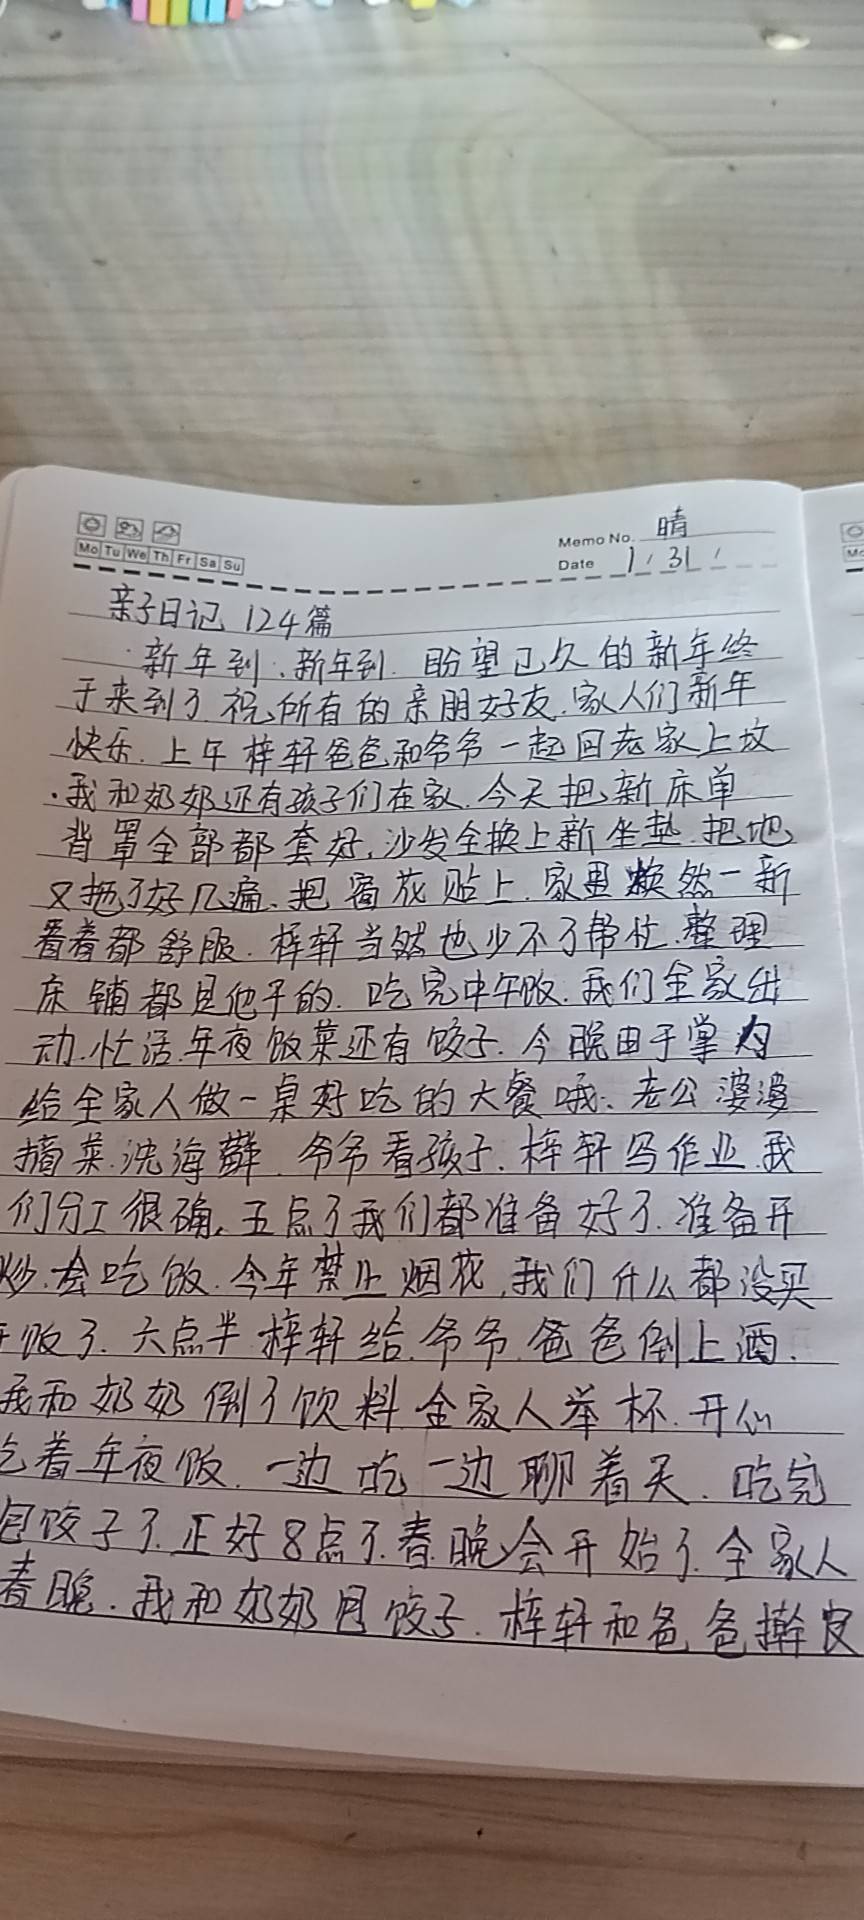 Memo No. 晴
Mo Tu We Th Fr Sa Su
Date 1 / 31 /
亲子日记 124篇
新年到、新年到. 盼望已久的新年终
于来到了.祝所有的亲朋好友.家人们新年
快乐. 上午梓轩爸爸和爷爷一起回老家上坟
.我和奶奶还有孩子们在家.今天把新床单
背罩全部都套好,沙发全换上新坐垫.把地
又拖了好几遍、把窗花贴上.家里焕然一新
看着都舒服. 梓轩当然也少不了帮忙.整理
床铺都是他干的. 吃完中午饭.我们全家出
动.忙活.年夜饭菜还有饺子.今晚由于掌为
给全家人做一桌好吃的大餐哦、老公婆婆
摘菜.洗海鲜.爷爷看孩子.梓轩写作业.我
们分工很确、五点了我们都准备好了.准备开
炒.去吃饭.今年禁止烟花,我们什么都没买
饭了.六点半梓轩给.爷爷.爸爸倒上酒.
我和奶奶倒了饮料全家人举杯.开心
吃着年夜饭.一边吃一边聊着天.吃完
包饺子了.正好8点了.春晚会开始了.全家人
春晚.我和奶奶包饺子.梓轩和爸爸擀皮